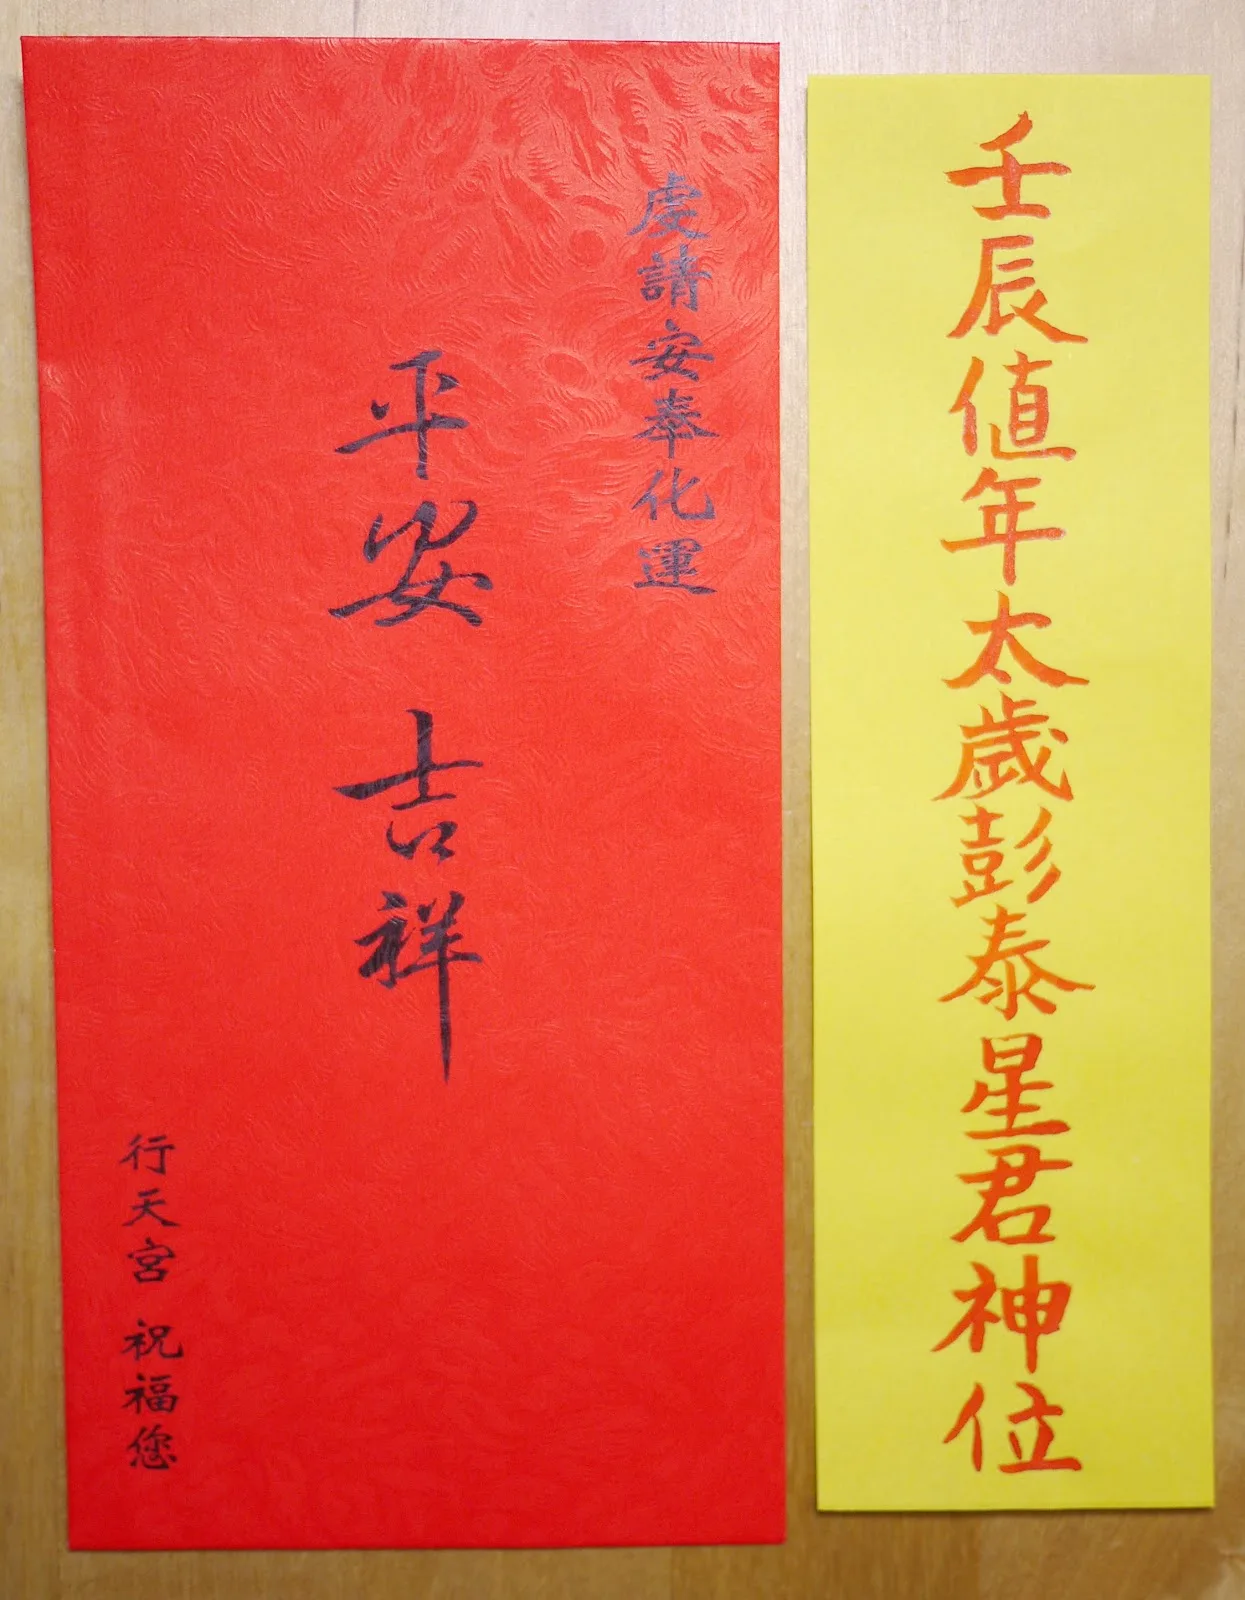 虔請安奉化運
平安 吉祥
行天宮 祝福您
壬辰值年太歲彭泰星君神位